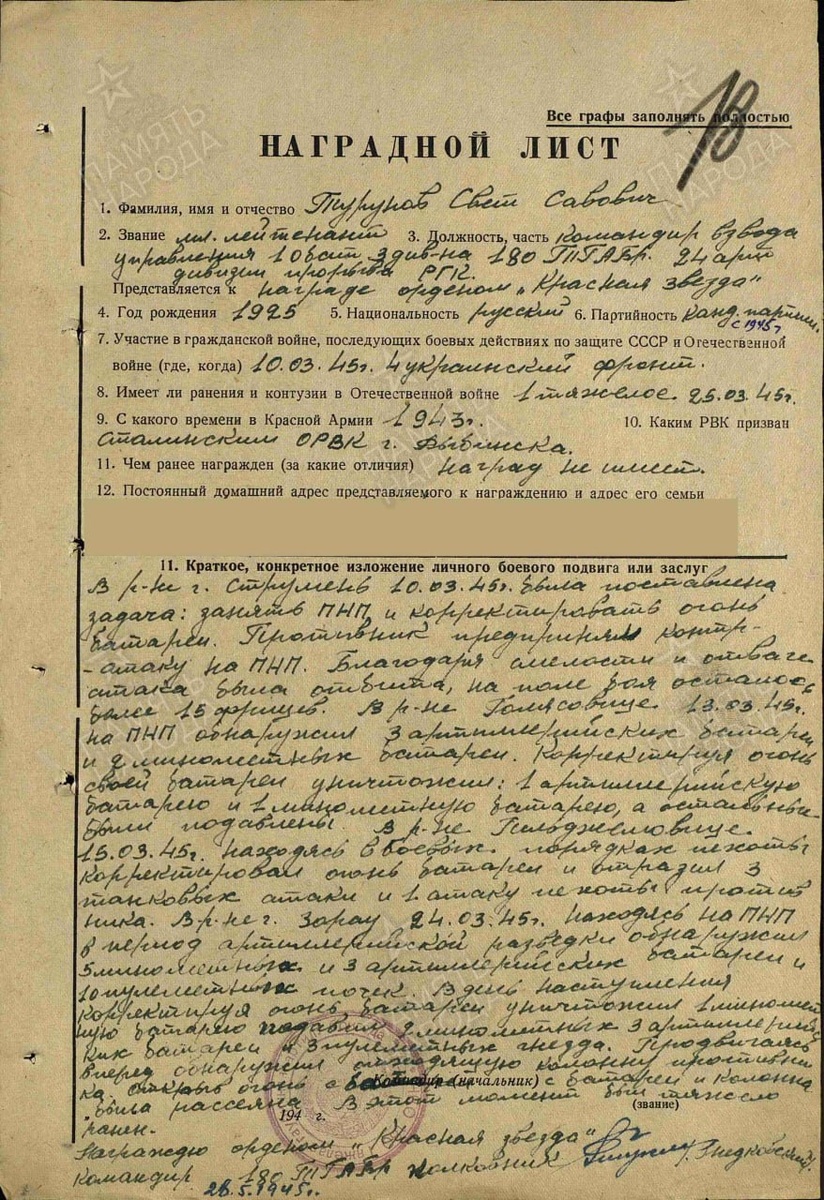 18
Все графы заполнять полностью
НАГРАДНОЙ ЛИСТ
1. Фамилия, имя и отчество Турунов Свет Савович
2. Звание мл. лейтенант 3. Должность, часть Командир взвода
управления 1 бат 3 див-на 180 ТГАБр. 24 арт
дивизии прорыва РГК.
Представляется к награде орденом „Красная звезда"
4. Год рождения 1925 5. Национальность русский 6. Партийность канд. партии
с 1945 г
7. Участие в гражданской войне, последующих боевых действиях по защите СССР и Отечественной
войне (где, когда) 10.03.45г. 4 украинский фронт.
8. Имеет ли ранения и контузии в Отечественной войне 1 тяжелое 25.03.45г.
9. С какого времени в Красной Армии 1943г. 10. Каким РВК призван
Сталинским ОРВК г.
11. Чем ранее награжден (за какие отличия) наград не имеет.
12. Постоянный домашний адрес представляемого к награждению и адрес его семьи
11. Краткое, конкретное изложение личного боевого подвига или заслуг
В р-не г. Струмень 10.03.45г. была поставлена
задача: занять ПНП и корректировать огонь
батареи. Противник предпринял контр-
-атаку на ПНП. Благодаря смелости и отваге
атака была отбита, на поле боя осталось
более 15 фрицев. В р-не Голясовице 13.03.45г.
на ПНП обнаружил 3 артиллерийских батареи
и 2 минометных батареи. Корректируя огонь
своей батареи уничтожил: 1 артиллерийскую
батарею и 1 минометную батарею, а остальные
были подавлены. В р-не
15.03.45г. находясь в боевых порядках пехоты
корректировал огонь батареи и отразил 3
танковых атаки и 1 атаку пехоты против
ника. В р-не г. Зорау 24.03.45г. находясь на ПНП
в период артиллерийской разведки обнаружил
5 минометных и 3 артиллерийских батареи и
10 пулеметных точек. В день наступления
корректируя огонь батареи уничтожил 1 миномет
ную батарею подавил 2 минометных 3 артиллерий
ских батареи и 3 пулеметных гнезда. Продвигаясь
вперед обнаружил отходящую колонну противни
ка. Открыв огонь с батареи и колонна
Командир (начальник)
была рассеяна. В этот момент был тяжело
194 г. (звание)
ранен.
Награждю орденом „Красная звезда"
Командир 180 ТГАБр полковник /Гнедковский/
28.5.1945г.
ПАМЯТЬ НАРОДА